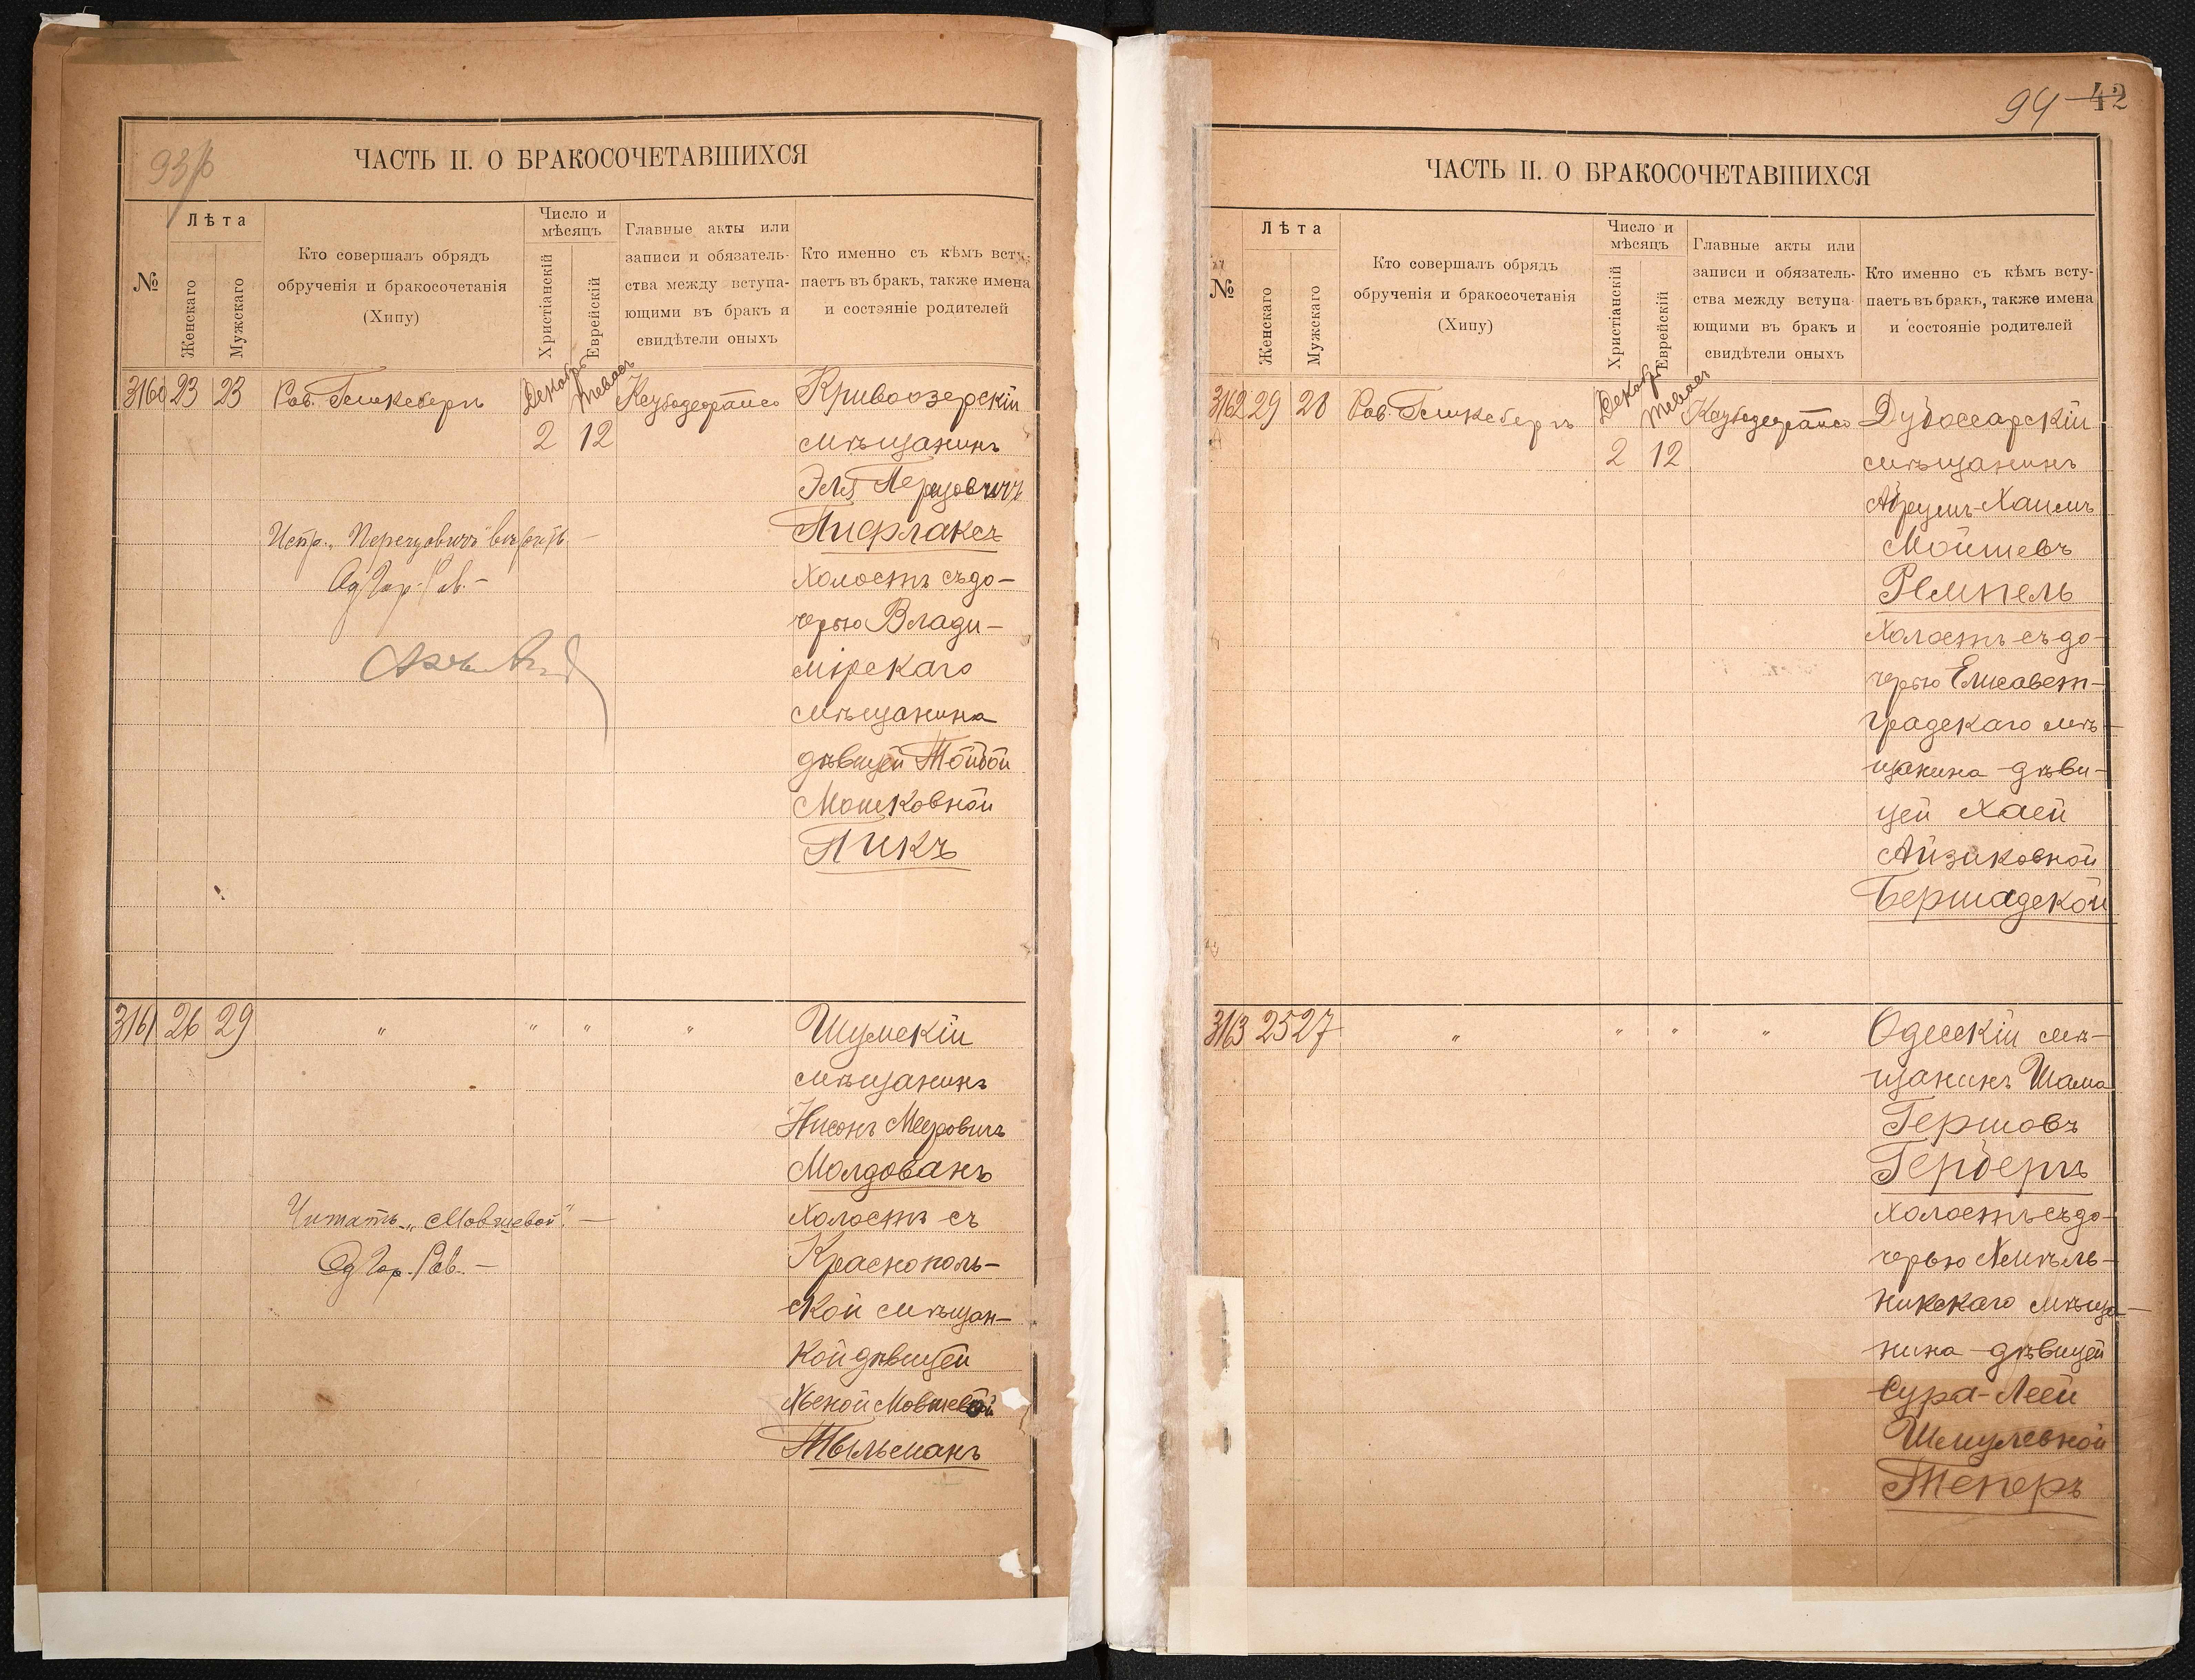 93
ЧАСТЬ II. О БРАКОСОЧЕТАВШИХСЯ
№
Лѣта
Женскаго
Мужскаго
Кто совершалъ обрядъ
обрученія и бракосочетанія
(Хипу)
Число и
мѣсяцъ
Христіанскій
Еврейскій
Главные акты или
записи и обязатель-
ства между вступа-
ющими въ бракъ и
свидѣтели оныхъ
Кто именно съ кѣмъ всту-
паетъ въ бракъ, также имена
и состояніе родителей
3160 23 23 Рав. Гешкебергъ Декабрь Тевесъ
2 12
Кривоозерскій
мѣщанинъ
Эля Перецовичъ
Пифлаксъ
холостъ съ до-
черью Влади-
мірскаго
мѣщанина
дѣвицей Тойбой
Мошковной
Пикъ
Испр. „Перецовичъ" вѣрить —
Од. Гор. Рав. —
3161 26 29 „ „ „ „
Шумскій
мѣщанинъ
Нисонъ Мееровичъ
Молдованъ
холостъ съ
Краснополь-
ской мѣщан-
кой дѣвицей
Хьеной Мовшевой
Тыльманъ
Читать „Мовшевой". —
Од. Гор. Рав. —
94 42
ЧАСТЬ II. О БРАКОСОЧЕТАВШИХСЯ
№
Лѣта
Женскаго
Мужскаго
Кто совершалъ обрядъ
обрученія и бракосочетанія
(Хипу)
Число и
мѣсяцъ
Христіанскій
Еврейскій
Главные акты или
записи и обязатель-
ства между вступа-
ющими въ бракъ и
свидѣтели оныхъ
Кто именно съ кѣмъ всту-
паетъ въ бракъ, также имена
и состояніе родителей
3162 29 28 Рав. Гешкебергъ Декабрь Тевесъ
2 12
Дубоссарскій
мѣщанинъ
Абрумъ-Хаимъ
Мойшевъ
Ремпель
холостъ съ до-
черью Елисавет-
градскаго мѣ-
щанина дѣви-
цей Хаей
Айзиковной
Бершадской
3163 25 27 „ „ „ „
Одесскій мѣ-
щанинъ Шама
Гершовъ
Герберъ
холостъ съ до-
черью Хмѣль-
никскаго мѣща-
нина дѣвицей
Сура-Леей
Шмулевной
Теперъ